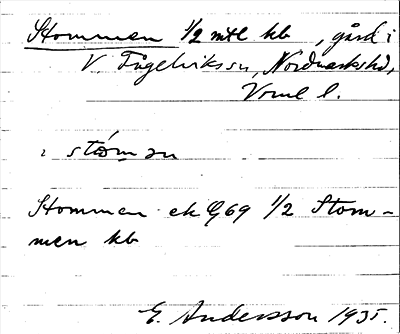 Stommen 1/2 mtl kb, gård i
V. Fågelviks sn, Nordmarks hd,
Vrml l.
i støman
Stommen ek G69 1/2 Stom-
men kb
E. Andersson 1935.